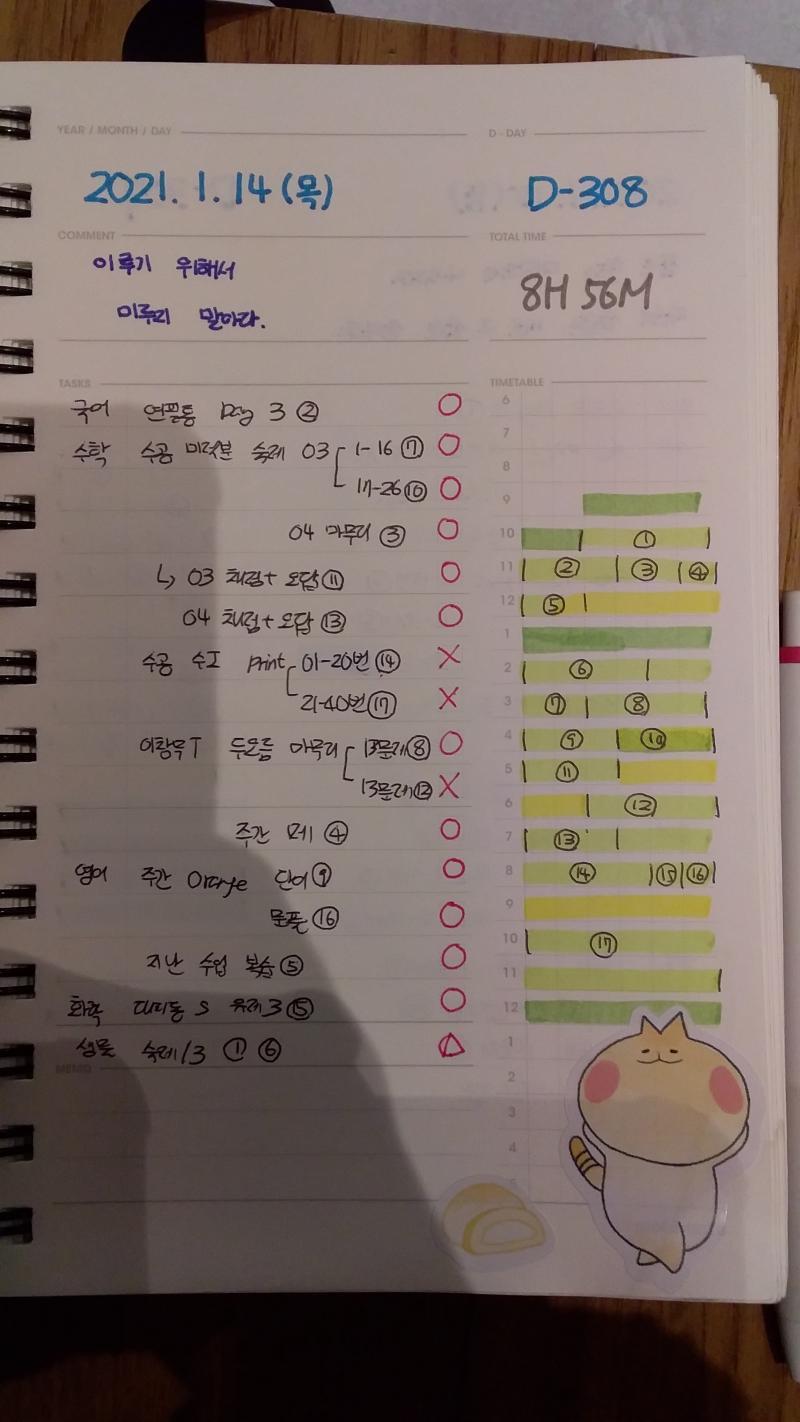 YEAR / MONTH / DAY
D - DAY
2021. 1. 14 (목)
D-308
COMMENT
TOTAL TIME
이루기 위해서
미루지 말아라.
8H 56M
TASKS
TIMETABLE
국어 연필통 Day 3 ②
수학 수공 미적분 숙제 03 1-16 ⑦
17-26 ⑩
04 마무리 ③
↳ 03 채점+오답 ⑪
04 채점+오답 ⑬
수공 수Ⅰ print 01-20번 ⑭
21-40번 ⑰
이창무T 마무리 13문제 ⑧
13문제 ⑫
주간 ④
영어 주간 Orange 단어 ⑨
문풀 ⑯
지난 수업 복습 ⑤
화학 S 3 ⑮
생물 숙제 1/3 ① ⑥
MEMO
6
7
8
9
10 ①
11 ② ③ ④
12 ⑤
1
2 ⑥
3 ⑦ ⑧
4 ⑨ ⑩
5 ⑪
6 ⑫
7 ⑬
8 ⑭ ⑮ ⑯
9
10 ⑰
11
12
1
2
3
4
5